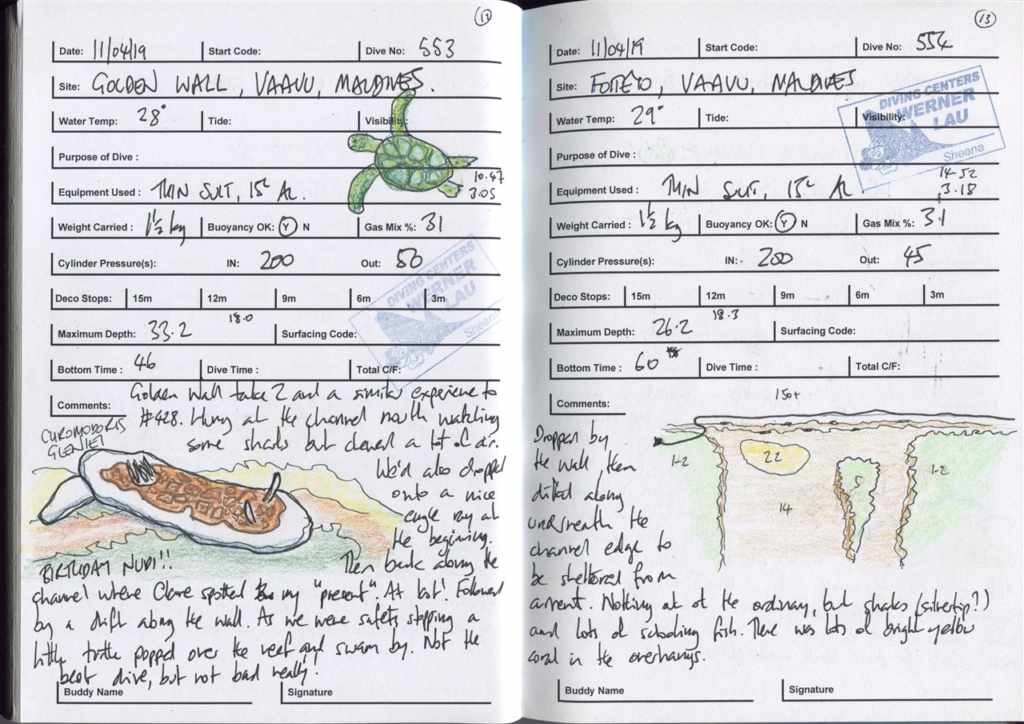 12
Date: 11/04/19 Start Code: Dive No: 553
Site: GOLDEN WALL, VAAVU, MALDIVES.
Water Temp: 28° Tide: Visibility:
Purpose of Dive :
10.47
Equipment Used : THIN SUIT, 15L AL. 3.05
Weight Carried : 1½ kg Buoyancy OK: Y N Gas Mix %: 31
Cylinder Pressure(s): IN: 200 Out: 50
DIVING CENTERS
WERNER
LAU
Sheena
Deco Stops: 15m 12m 9m 6m 3m
18.0
Maximum Depth: 33.2 Surfacing Code:
Bottom Time : 46 Dive Time : Total C/F:
Comments: Golden Wall take 2 and a similar experience to
#428. Hung at the channel mouth watching
some sharks but chewed a lot of air.
CHROMODORIS
We'd also dropped
onto a nice
eagle ray at
the beginning.
BIRTHDAY NUDI!!
Then back along the
channel where Clare spotted my "present". At last! Followed
by a drift along the wall. As we were safety stopping a
little turtle popped over the reef and swam by. Not the
best dive, but not bad really.
Buddy Name Signature
13
Date: 11/04/19 Start Code: Dive No: 554
Site: FOTTEYO, VAAVU, MALDIVES
DIVING CENTERS
WERNER
LAU
Sheena
Water Temp: 29° Tide: Visibility:
Purpose of Dive :
14.52
Equipment Used : THIN SUIT, 15L AL 3.18
Weight Carried : 1½ kg Buoyancy OK: Y N Gas Mix %: 31
Cylinder Pressure(s): IN:- 200 Out: 45
Deco Stops: 15m 12m 9m 6m 3m
18.3
Maximum Depth: 26.2 Surfacing Code:
Bottom Time : 60 Dive Time : Total C/F:
Comments:
150+
1-2
22
5
1-2
14
Dropped by
the wall, then
drifted along
underneath the
channel edge to
be sheltered from
current. Nothing out of the ordinary, but sharks (silvertip?)
and lots of schooling fish. There was lots of bright yellow
coral in the overhangs.
Buddy Name Signature